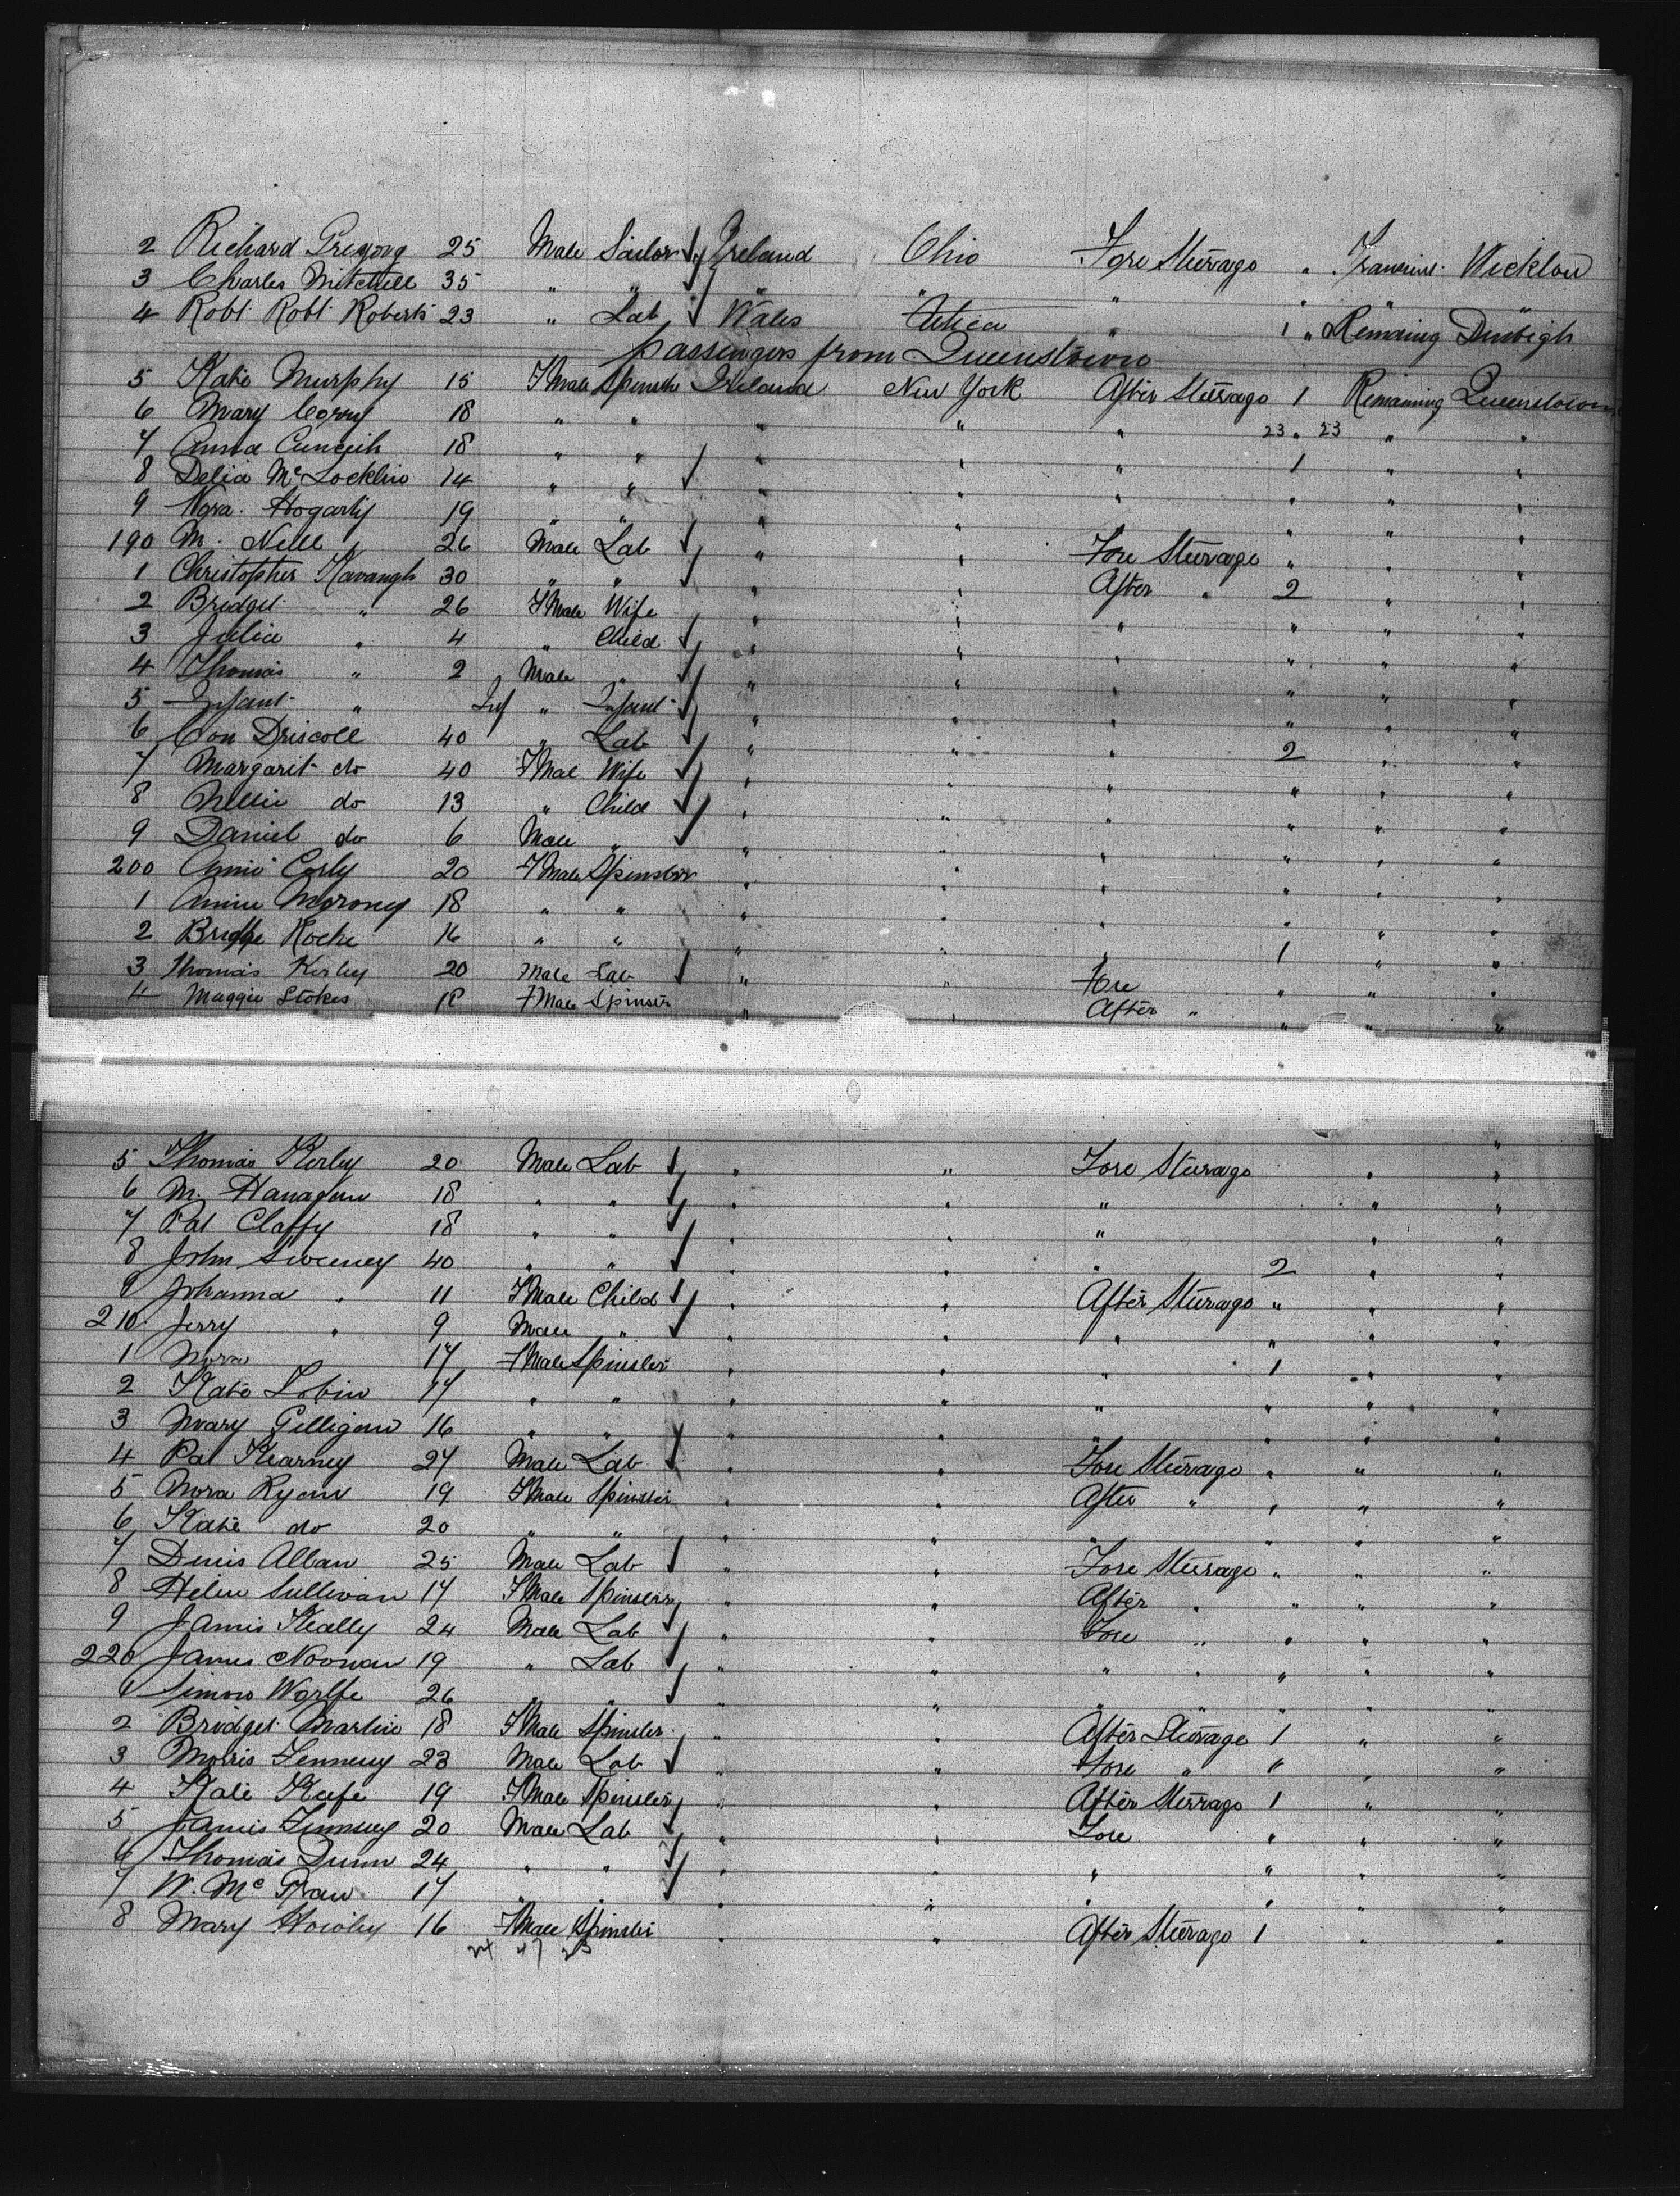 2 Richard Gregory 25 Male Sailor Ireland Ohio Fore Steerage " Wicklow
3 Charles Mitchell 35 " " " " " " " "
4 Robt Robt Roberts 23 " Lab Wales Utica " 1 " Remaining Denbigh
Passengers from Queenstown
5 Kate Murphy 18 FMale Spinster Ireland New York After Steerage 1 Remaining Queenstown
6 Mary Corry 18 " " " " " 23 " 23 " "
7 Anna 18 " " " " " 1 " "
8 Delia McLocklin 14 " " " " " " " "
9 Nora Hogarty 19 " " " " " " "
190 M. Nell 26 Male Lab " " Fore Steerage " " "
1 Christopher Kavangh 30 " " " " After " 2 " "
2 Bridget " 26 FMale Wife " " " " " "
3 Julia " 4 " Child " " " " " "
4 Thomas " 2 Male " " " " " " "
5 Infant " Inf " Infant " " " " " "
6 Con Driscoll 40 " Lab " " " 2 " "
7 Margarit do 40 FMal Wife " " " " " "
8 Nellie do 13 " Child " " " " " "
9 Daniel do 6 Male " " " " " " "
200 Annie Corly 20 FMale Spinster " " " " " "
1 Annie Morony 18 " " " " " " " "
2 Bridge Roche 16 " " " " " 1 " "
3 Thomas Kerley 20 Male Lab " " Fore " " "
4 Maggie Stokes 18 FMale Spinster " " After " " " "
5 Thomas Kerley 20 Male Lab " " Fore Steerage " "
6 M. Hanagan 18 " " " " " " "
7 Pat Claffy 18 " " " " " " "
8 John Sweeney 40 " " " " " 2 " "
9 Johanna " 11 FMale Child " " After Steerage " " "
210 Jerry " 9 Male " " " " " " "
1 Nora 17 FMale Spinster " " " 1 " "
2 Kate Tobin 17 " " " " " " " "
3 Mary Gilligan 16 " " " " " " " "
4 Pat Kearney 27 Male Lab " " Fore Steerage " " "
5 Nora Ryan 19 FMale Spinster " " After " " " "
6 Kate do 20 " " " " " " " "
7 Dinis Allan 25 Male Lab " " Fore Steerage " " "
8 Helen Sullivan 17 FMale Spinster " " After " " " "
9 James Keally 24 Male Lab " " Fore " " " "
220 James Noonan 19 " Lab " " " " " " "
1 Simon Worlfe 26 " " " " " " " " "
2 Bridget Martin 18 FMale Spinster " " After Steerage 1 " "
3 Morris Fennessy 23 Male Lab " " Fore " " " "
4 Kate Keefe 19 FMale Spinster " " After Steerage 1 " "
5 James 20 Male Lab " " Fore " " "
6 Thomas Dunn 24 " " " " " " " "
7 W. Mc 17 " " " " " " " "
8 Mary Howley 16 FMale Spinster " " After Steerage 1 " "
24 47 23